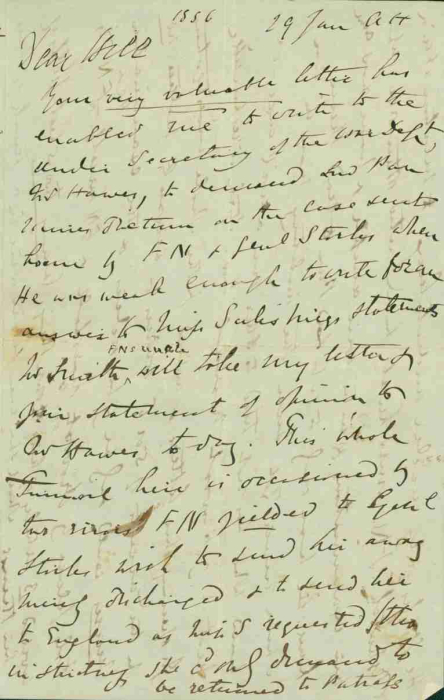 1856 29 Jan Ath
Dear Hill
Your very valuable letter has
enabled me to write to the
Under Secretary of the War Dept,
Mr Hawes, to demand Lord Pan
mures Return on the case sent
home by FN & Genl Storks when
He was weak enough to write for an
answer to Miss Salisburys statements
Mr Smith, FNs uncle will take my letter &
your statement of opinion to
Mr Hawes to day. This whole
Turmoil here is occasioned by
two FN yielded to Genl
Storks wish to send her away
being discharged & to send her
to England as Miss S requested / tho
in strictness she cd only demand to
be returned to Patras